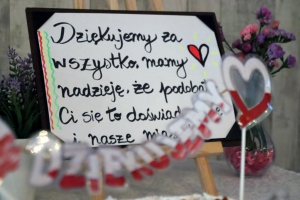 Dziękujemy za
wszystko, mamy
nadzieję, że podobał
Ci się to doświadcz
i nasze
DZIĘKUJEMY